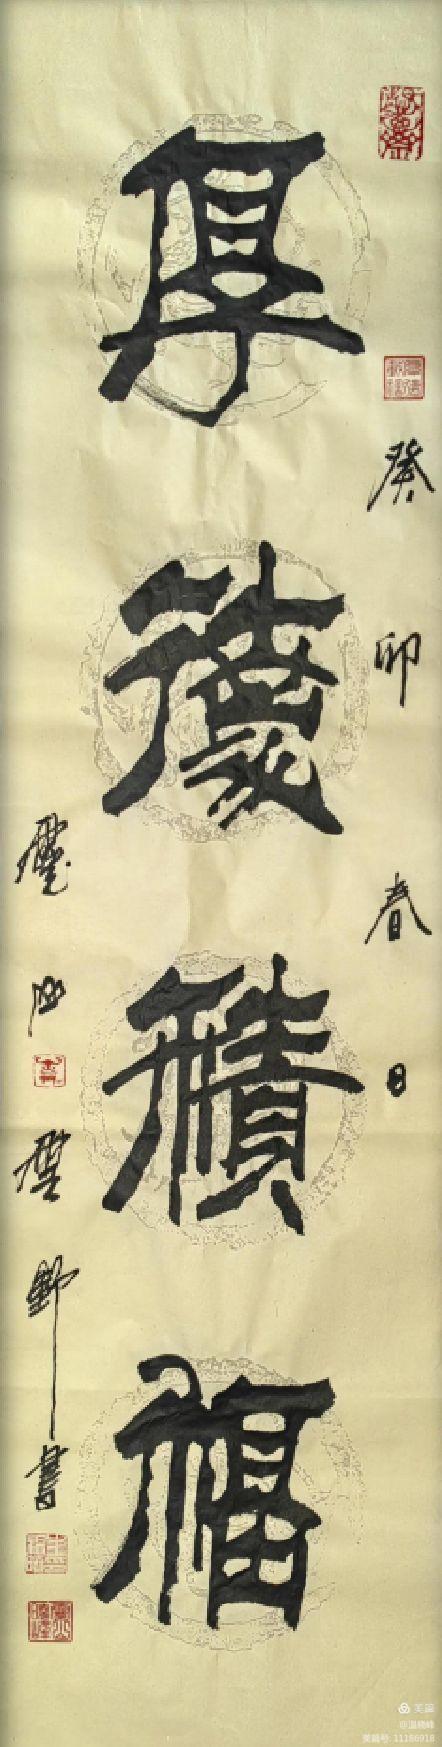 厚德積福
癸卯春日
野書
美篇
@温晓峰
美篇号:11186918